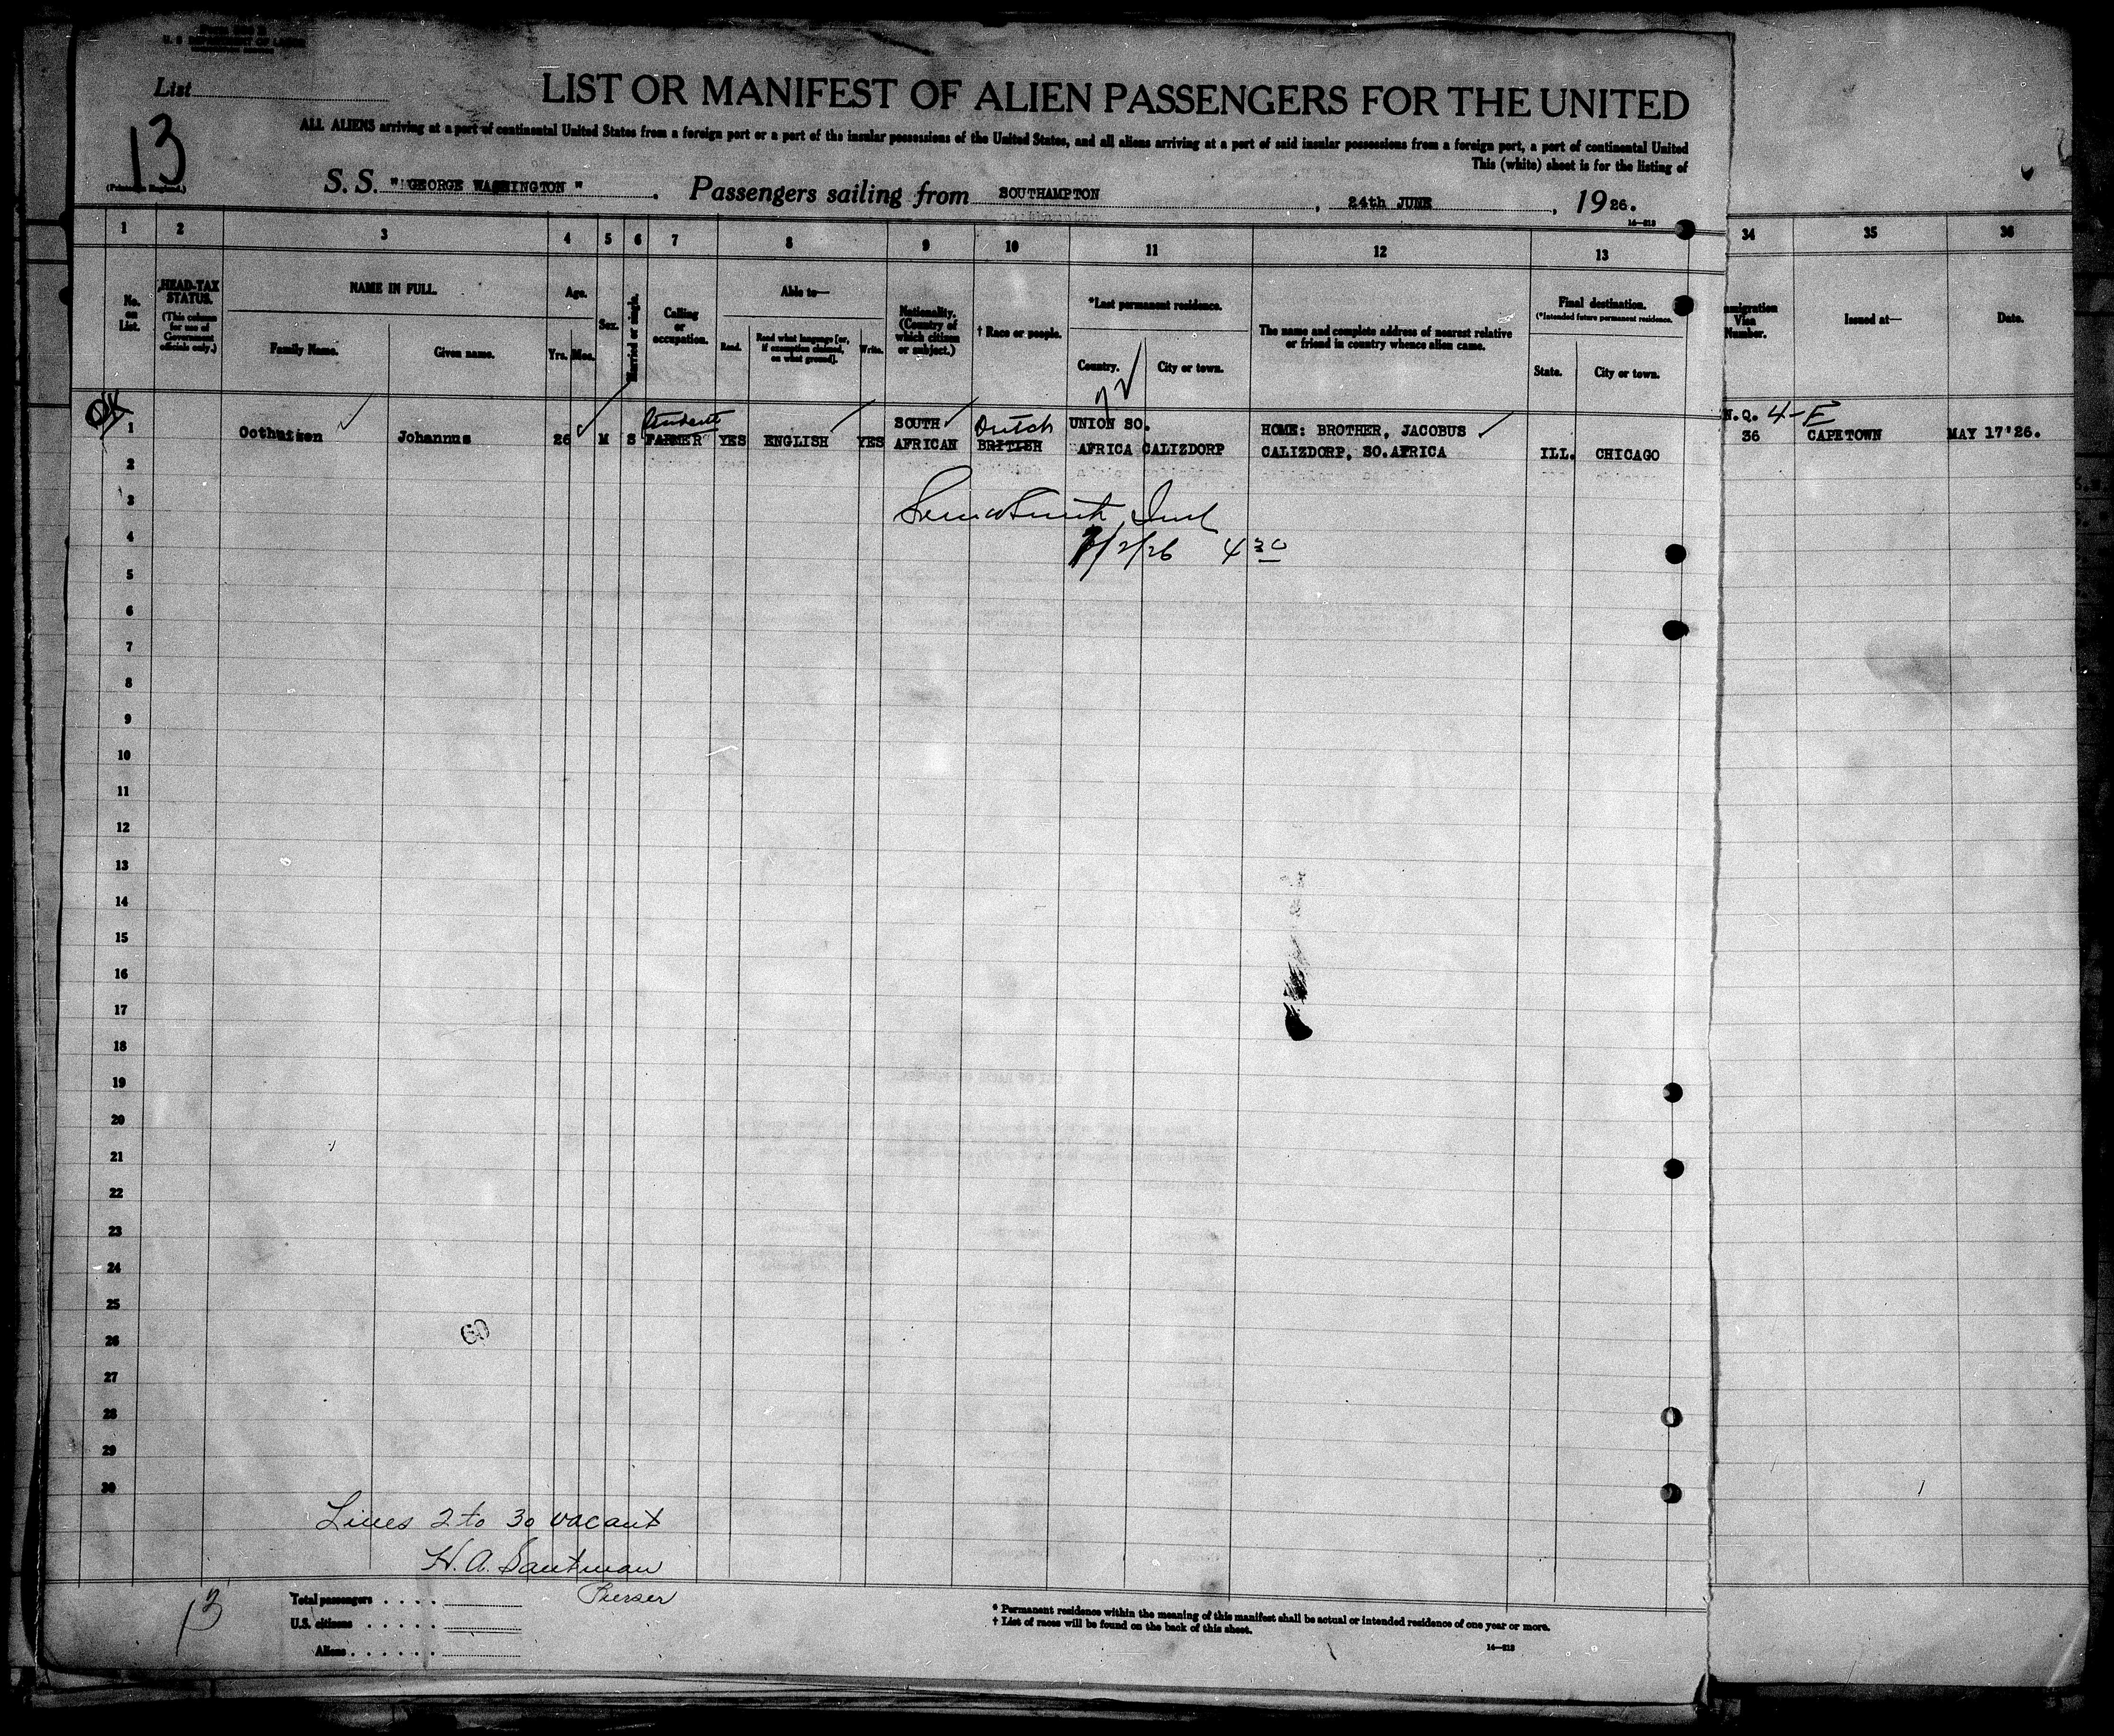 U. S. DEPARTMENT OF LABOR
List
LIST OR MANIFEST OF ALIEN PASSENGERS FOR THE UNITED
13
ALL ALIENS arriving at a port of continental United States from a foreign port or a port of the insular possessions of the United States, and all aliens arriving at a port of said insular possessions from a foreign port, a port of continental United
This (white) sheet is for the listing of
(Printed in England.)
S. S. "GEORGE WASHINGTON" . Passengers sailing from SOUTHAMPTON , 24th JUNE , 1926.
14—213
1 2 3 4 5 6 7 8 9 10 11 12 13 34 35 36
No. on List.
HEAD-TAX STATUS. (This column for use of Government officials only.)
NAME IN FULL.
Family Name. Given name.
Age.
Yrs. Mos.
Sex.
Married or single.
Calling or occupation.
Able to—
Read. Read what language [or, if exemption claimed, on what ground]. Write.
Nationality. (Country of which citizen or subject.)
† Race or people.
*Last permanent residence.
Country. City or town.
The name and complete address of nearest relative or friend in country whence alien came.
Final destination.
(*Intended future permanent residence.
State. City or town.
mmigration Visa Number.
Issued at—
Date.
OK
Student SOUTH Dutch UNION SO. N.Q. 4-E
1 Oothuizen Johannus 26 M S FARMER YES ENGLISH YES AFRICAN BRITISH AFRICA CALIZDORP HOME: BROTHER, JACOBUS 36 CAPETOWN MAY 17'26.
CALIZDORP, SO.AFRICA ILL. CHICAGO
2
3
4
7/2/26 4 30
5
6
7
8
9
10
11
12
13
14
15
16
17
18
19
20
21
22
23
24
25
26
60
27
28
29
30
Lines 2 to 30 vacant
H. A. Santman
Purser
13
Total passengers . . . .
U.S. citizens . . . . .
Aliens . . . . . .
* Permanent residence within the meaning of this manifest shall be actual or intended residence of one year or more.
† List of races will be found on the back of this sheet.
14—213